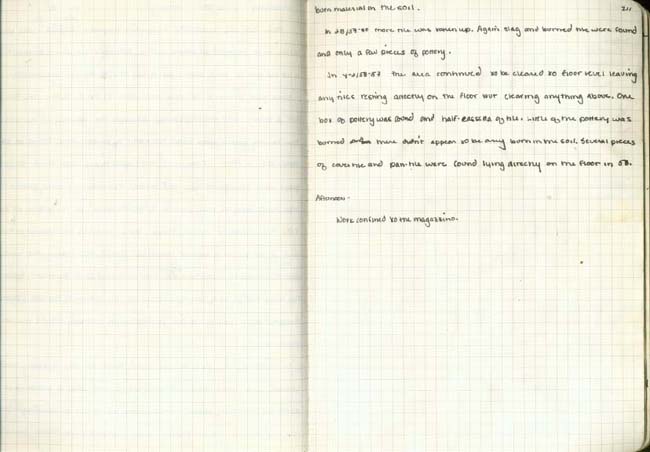 211
burn material in the soil.
In more tile was taken up. Again slag and burned tile were found
and only a few pieces of pottery.
In the area continued to be cleared to floor level leaving
any tiles resting directly on the floor but clearing anything above. One
box of pottery was found and half-baskets of tile. Little of the pottery was
burned there didn't appear to be any burn in the soil. Several pieces
of cover tile and pan-tile were found lying directly on the floor in
Afternoon -
Work confined to the magazzino.